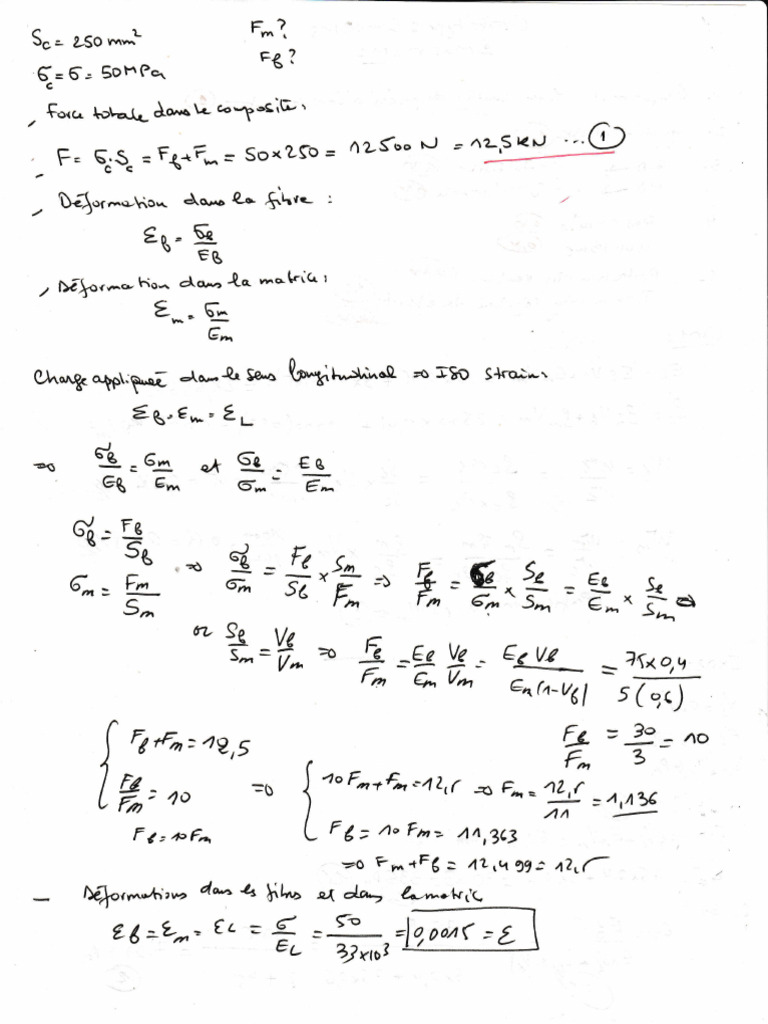 Sc = 250 mm² Fm?
σc = σ = 50 MPa Ff?
- Force totale dans le composite :
- F = σc.Sc = Ff + Fm = 50 x 250 = 12500 N = 12,5 KN ... ①
- Déformation dans la fibre :
εf = σf/Ef
- Déformation dans la matrice :
εm = σm/Em
Charge appliqueé dans le sens longitudinal => ISO strain :
εf = εm = εL
=> σf/Ef = σm/Em et σf/σm = Ef/Em
σf = Ff/Sf
σm = Fm/Sm => σf/σm = Ff/Sf x Sm/Fm => Ff/Fm = σf/σm x Sf/Sm = Ef/Em x Sf/Sm =>
or Sf/Sm = Vf/Vm => Ff/Fm = Ef/Em Vf/Vm = Ef Vf/Em(1-Vf) = 75x0,4/5(0,6)
Ff/Fm = 30/3 = 10
{ Ff + Fm = 12,5
Ff/Fm = 10 => { 10 Fm + Fm = 12,5 => Fm = 12,5/11 = 1,136
Ff = 10 Fm Ff = 10 Fm = 11,363
=> Fm + Ff = 12,499 = 12,5
- Déformations dans les fibres et dans la matrice
εf = εm = εL = σ/EL = 50/33x10³ = 0,0015 = ε